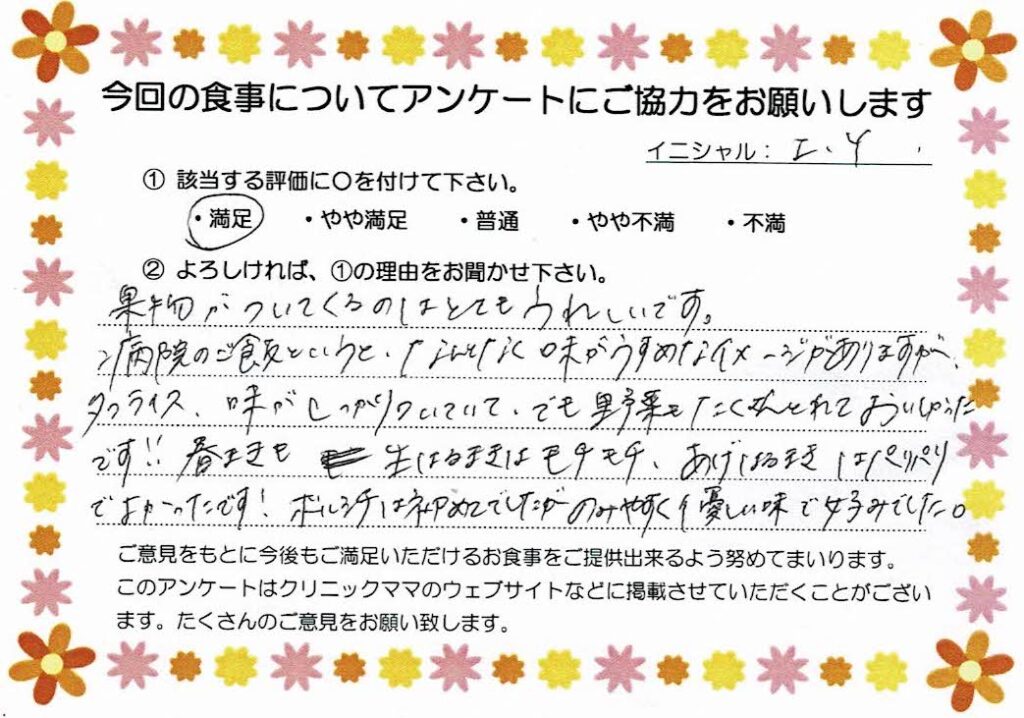 今回の食事についてアンケートにご協力をお願いします
イニシャル： I.Y
① 該当する評価に○を付けて下さい。
・満足 ・やや満足 ・普通 ・やや不満 ・不満
② よろしければ、①の理由をお聞かせ下さい。
果物がついてくるのはとてもうれしいです。
病院のご飯というと、なんとなく味がうすめなイメージがありますが、
タコライス、味がしっかりついていて、でも野菜もたくさんとれておいしかった
です!! 春まきも 生はるまきはモチモチ、あげはるまきはパリパリ
でよかったです! ボルシチは初めてでしたがのみやすく優しい味で好みでした。
ご意見をもとに今後もご満足いただけるお食事をご提供出来るよう努めてまいります。
このアンケートはクリニックママのウェブサイトなどに掲載させていただくことがござい
ます。たくさんのご意見をお願い致します。